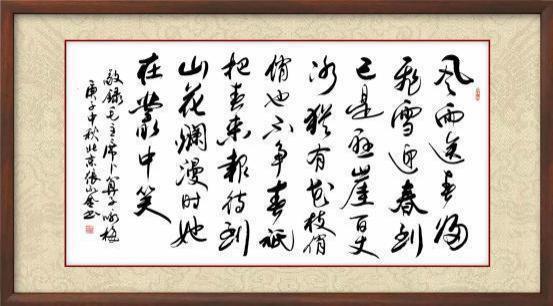 风雨送春归
飛雪迎春到
已是悬崖百丈
冰猶有花枝俏
俏也不争春祇
把春来報待到
山花爛漫时她
在叢中笑
敬録毛主席卜算子咏梅
庚子中秋北京張山书